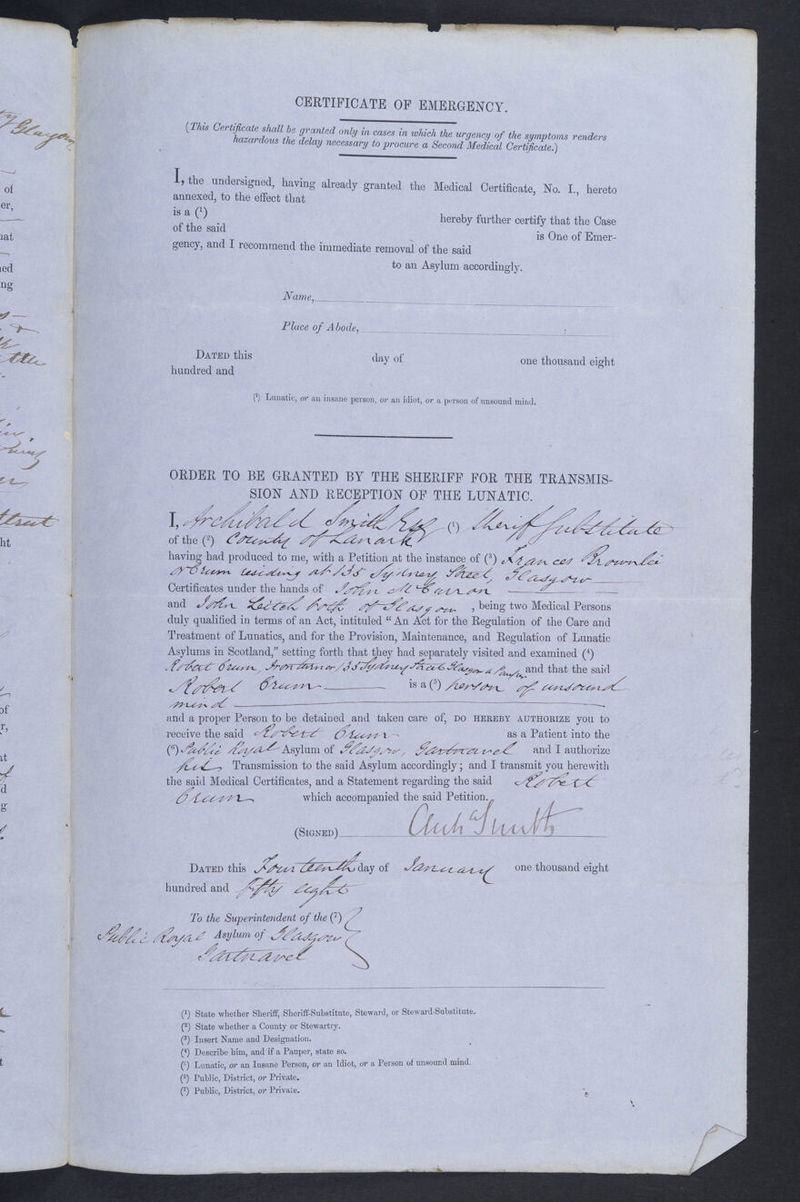 CERTIFICATE OF EMERGENCY.
(This Certificate shall be granted only in cases in which the urgency of the symptoms renders
hazardous the delay necessary to procure a Second Medical Certificate.)
I, the undersigned, having already granted the Medical Certificate, No. I., hereto
annexed, to the effect that
is a (¹) hereby further certify that the Case
of the said is One of Emer-
gency, and I recommend the immediate removal of the said
to an Asylum accordingly.
Name,
Place of Abode,
DATED this day of one thousand eight
hundred and
(¹) Lunatic, or an insane person, or an idiot, or a person of unsound mind.
ORDER TO BE GRANTED BY THE SHERIFF FOR THE TRANSMIS-
SION AND RECEPTION OF THE LUNATIC.
I, Archibald Smith Esq (¹) Sheriff Substitute
of the (²) County of Lanark
having had produced to me, with a Petition at the instance of (³) Frances Brownlie
or Crum residing at 135 Sydney Street, Glasgow
Certificates under the hands of John
and John Leitch both of Glasgow , being two Medical Persons
duly qualified in terms of an Act, intituled "An Act for the Regulation of the Care and
Treatment of Lunatics, and for the Provision, Maintenance, and Regulation of Lunatic
Asylums in Scotland," setting forth that they had separately visited and examined (⁴)
Robert Crum, Iron turner 135 Sydney Street Glasgow a Pauper and that the said
Robert Crum is a (⁵) person of unsound
mind
and a proper Person to be detained and taken care of, DO HEREBY AUTHORIZE you to
receive the said Robert Crum as a Patient into the
(⁶) Public Royal Asylum of Glasgow, Gartnavel and I authorize
his Transmission to the said Asylum accordingly; and I transmit you herewith
the said Medical Certificates, and a Statement regarding the said Robert
Crum which accompanied the said Petition.
(SIGNED) Archd Smith
DATED this Fourteenth day of January one thousand eight
hundred and fifty eight
To the Superintendent of the (⁷)
Public Royal Asylum of Glasgow
Gartnavel
(¹) State whether Sheriff, Sheriff-Substitute, Steward, or Steward-Substitute.
(²) State whether a County or Stewartry.
(³) Insert Name and Designation.
(⁴) Describe him, and if a Pauper, state so.
(⁵) Lunatic, or an Insane Person, or an Idiot, or a Person of unsound mind.
(⁶) Public, District, or Private.
(⁷) Public, District, or Private.